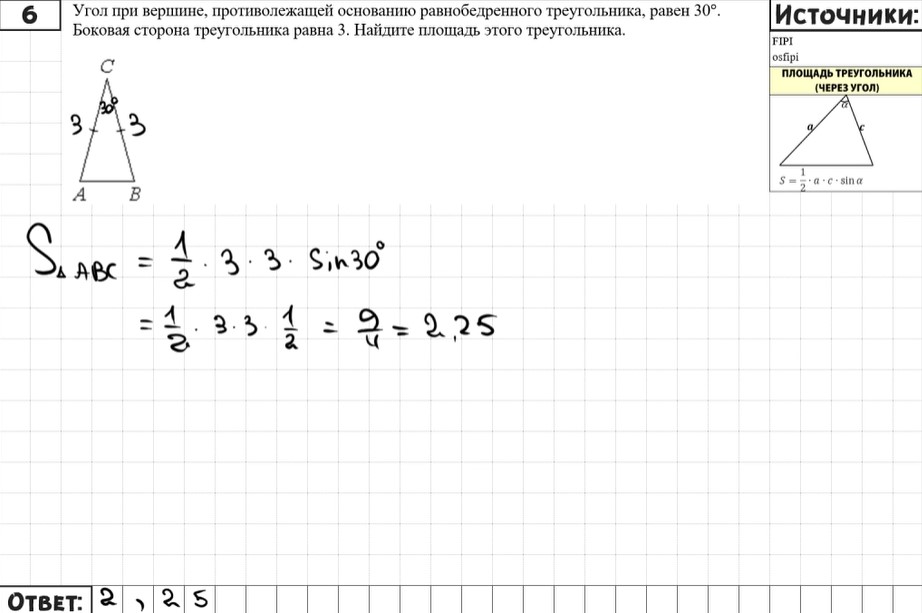 6
Угол при вершине, противолежащей основанию равнобедренного треугольника, равен 30°.
Боковая сторона треугольника равна 3. Найдите площадь этого треугольника.
Источники:
FIPI
osfipi
ПЛОЩАДЬ ТРЕУГОЛЬНИКА
(ЧЕРЕЗ УГОЛ)
α
a c
S = 1/2 · a · c · sin α
C
30°
3 3
A B
S△ABC = 1/2 · 3 · 3 · Sin30°
= 1/2 · 3 · 3 · 1/2 = 9/4 = 2,25
ОТВЕТ: 2 , 2 5